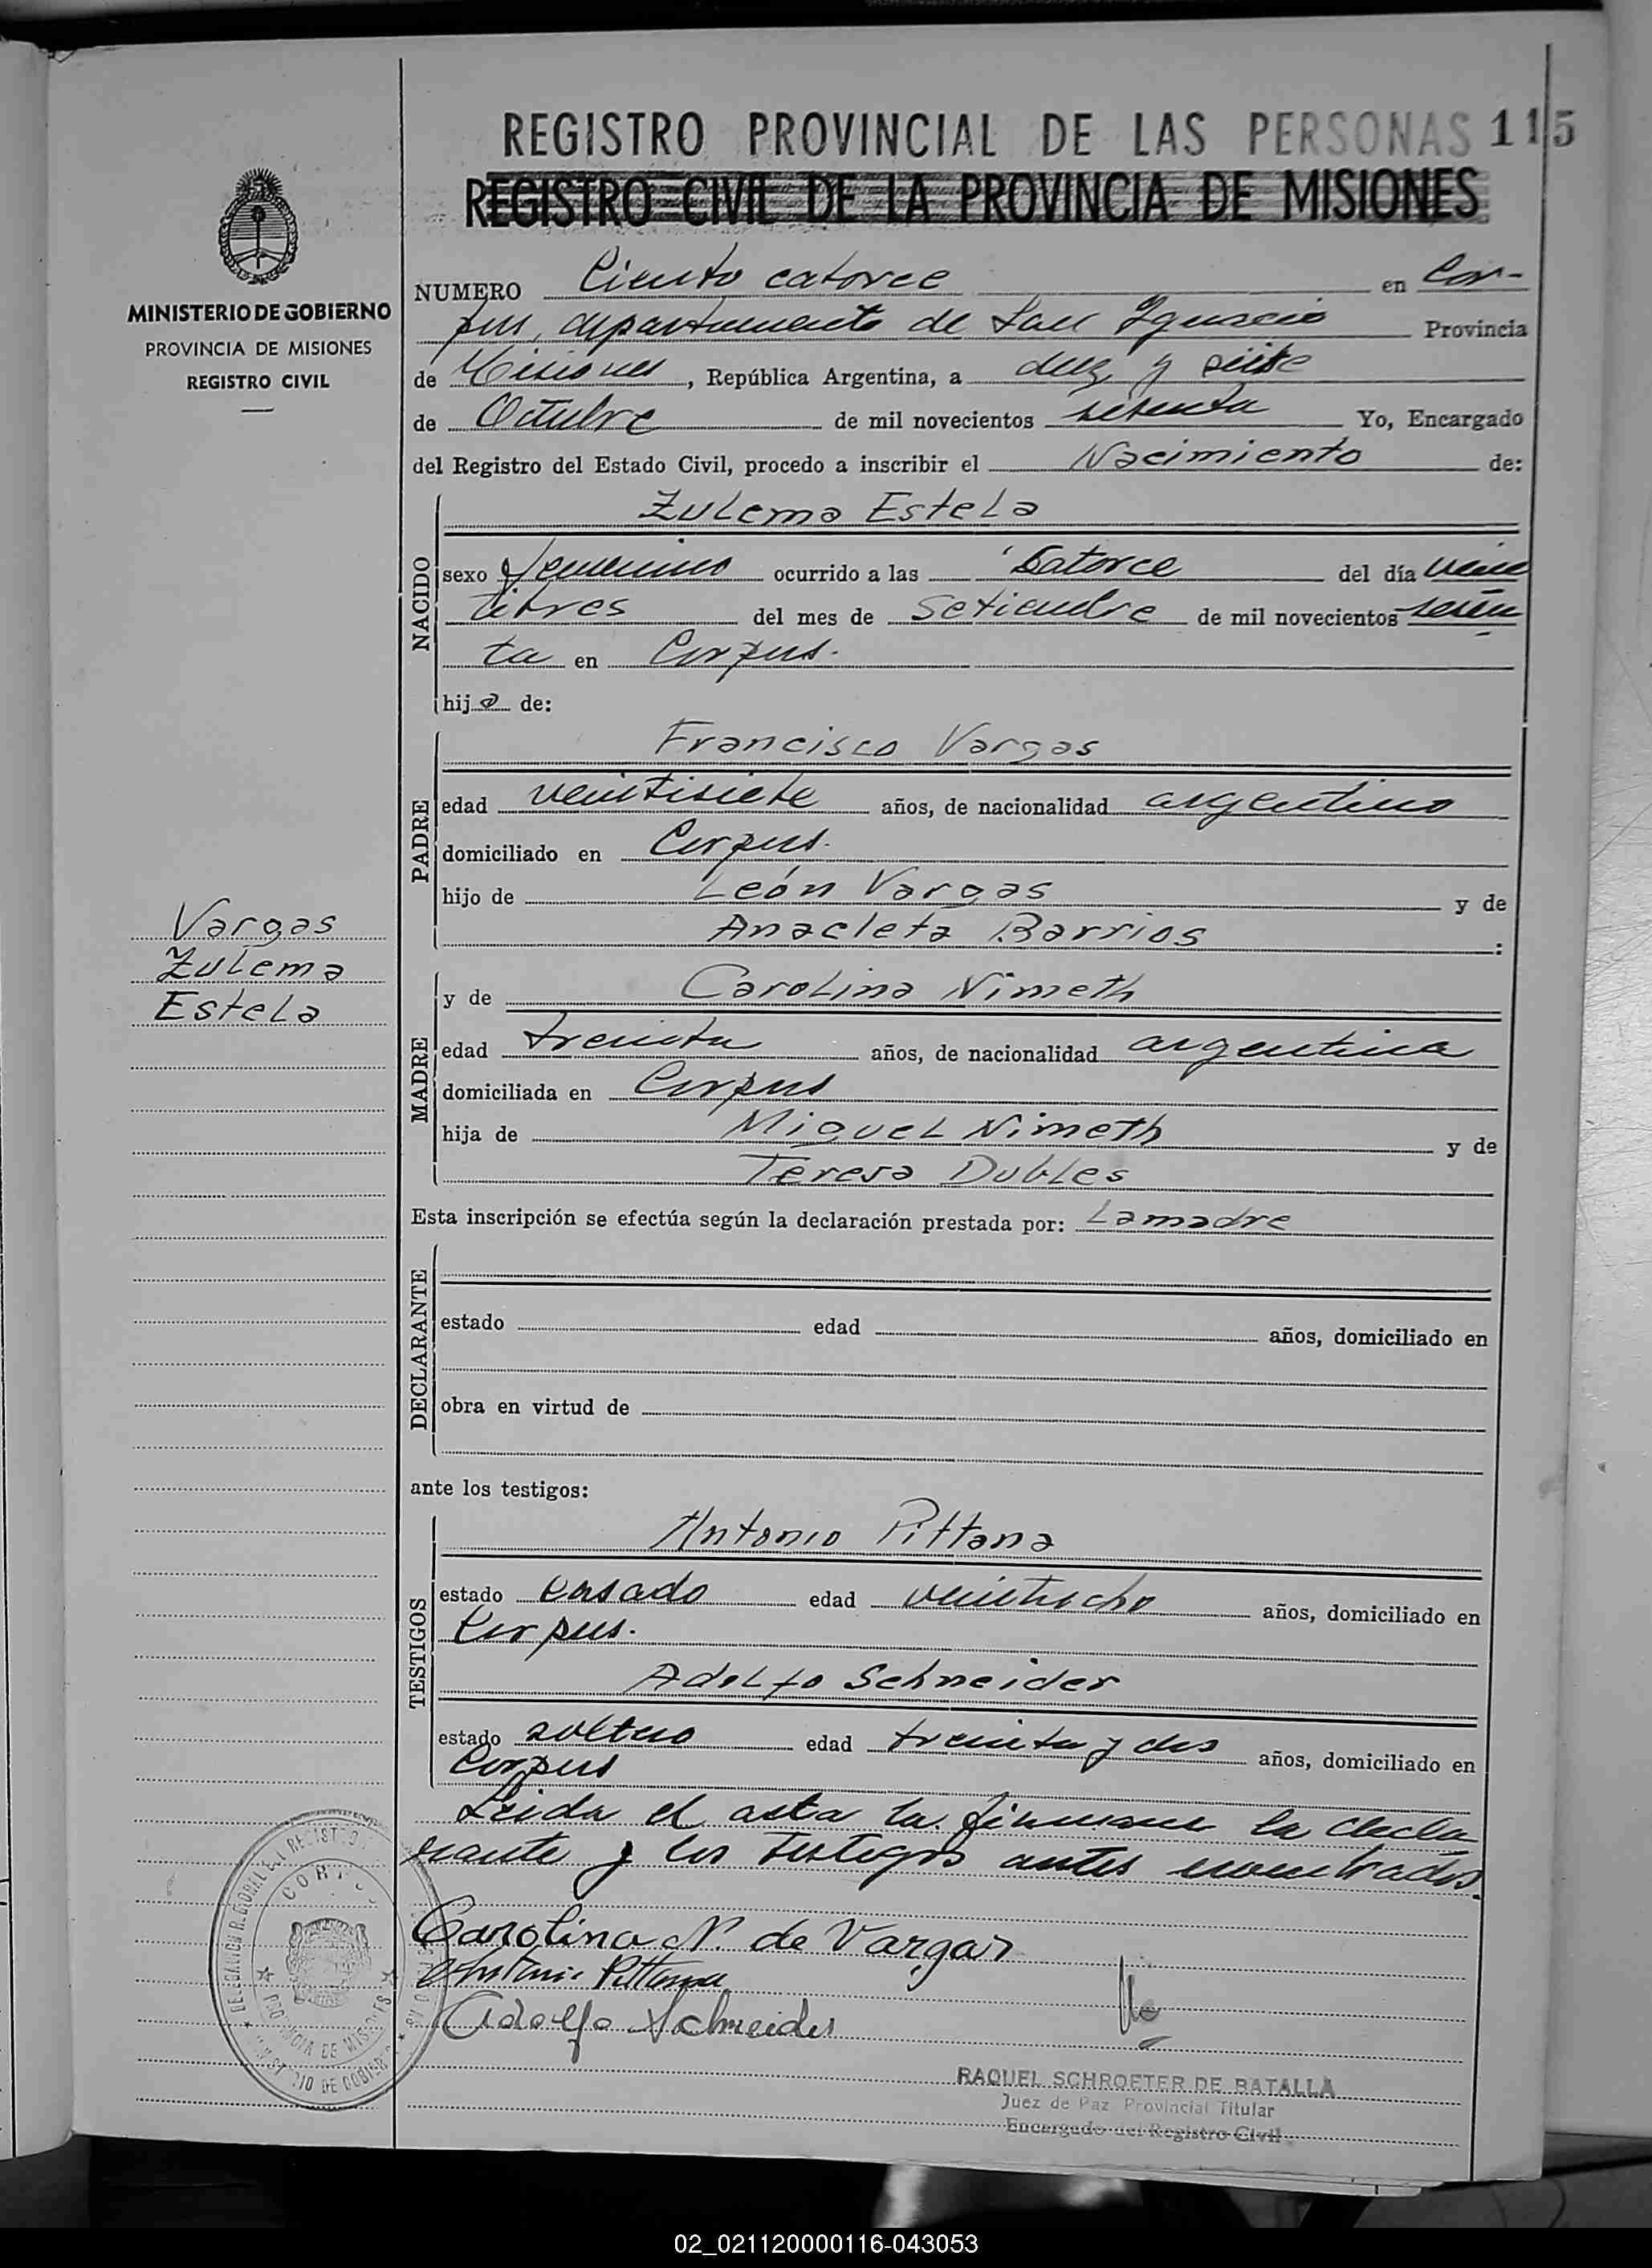 REGISTRO PROVINCIAL DE LAS PERSONAS 115
REGISTRO CIVIL DE LA PROVINCIA DE MISIONES
MINISTERIO DE GOBIERNO
PROVINCIA DE MISIONES
REGISTRO CIVIL
NUMERO Ciento catorce en Cor-
pus, departamento de San Ignacio Provincia
de Misiones, República Argentina, a diez y siete
de Octubre de mil novecientos setenta Yo, Encargado
del Registro del Estado Civil, procedo a inscribir el Nacimiento de:
NACIDO
Zulema Estela
sexo femenino ocurrido a las Catorce del día vein
titres del mes de Setiembre de mil novecientos seten
ta en Corpus.
hija de:
PADRE
Francisco Vargas
edad veintisiete años, de nacionalidad argentino
domiciliado en Corpus.
hijo de León Vargas y de
Anacleta Barrios :
Vargas
Zulema
Estela
MADRE
y de Carolina Nimeth
edad treinta años, de nacionalidad argentina
domiciliada en Corpus
hija de Miguel Nimeth y de
Teresa Dubles
Esta inscripción se efectúa según la declaración prestada por: La madre
DECLARANTE
estado edad años, domiciliado en
obra en virtud de
ante los testigos:
TESTIGOS
Antonio Pittana
estado casado edad veintiocho años, domiciliado en
Corpus.
Adolfo Schneider
estado soltero edad treinta y dos años, domiciliado en
Corpus
Leida el acta la firman la decla
rante y los testigos antes nombrados.
Carolina N. de Vargas
Antonio Pittana
Adolfo Schneider
RAQUEL SCHROETER DE BATALLA
Juez de Paz Provincial Titular
Encargado del Registro Civil
02_021120000116-043053